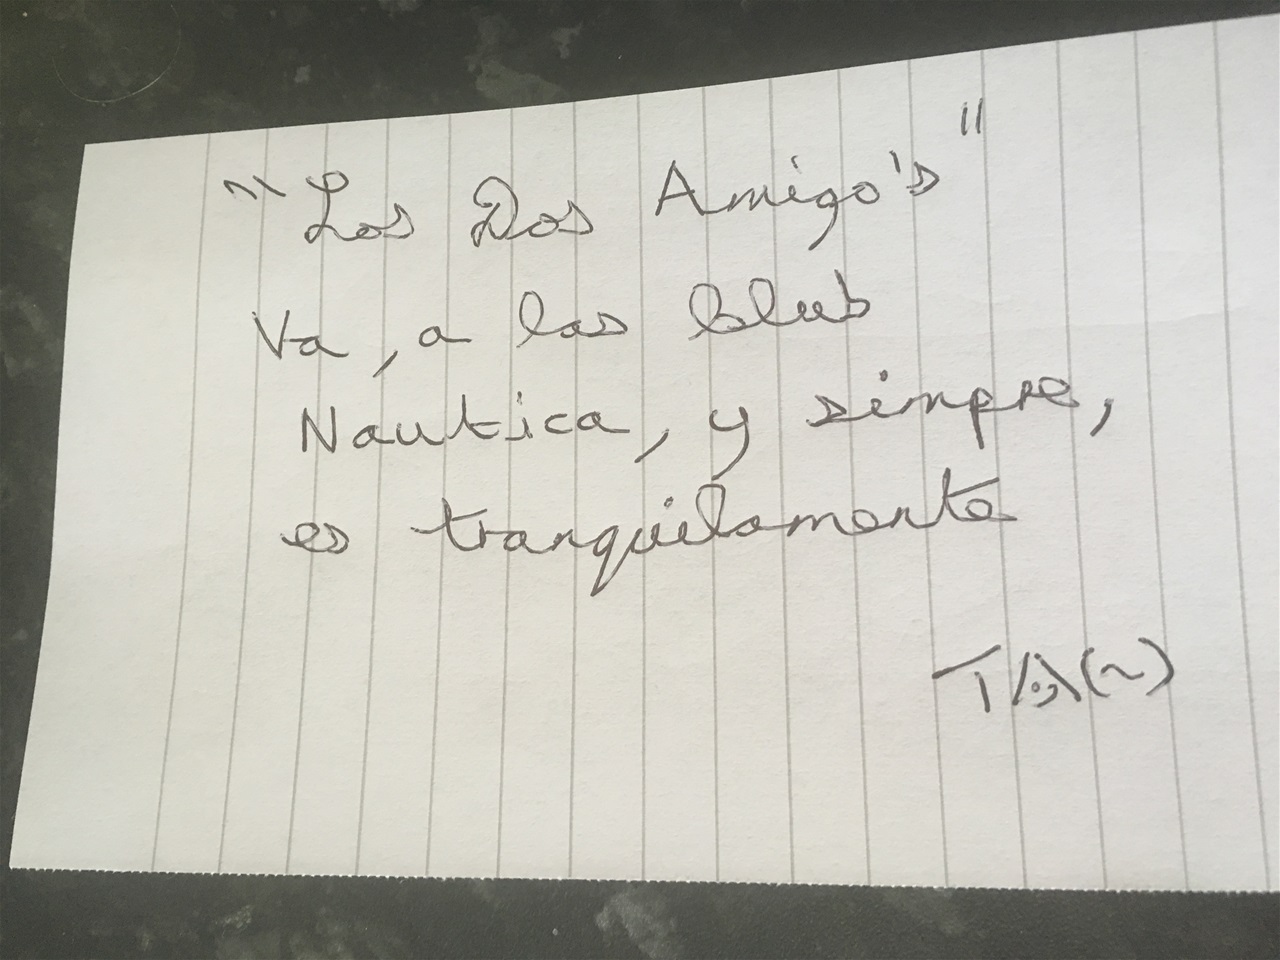 "Los Dos Amigo's"
Va, a las Club
Nautica, y simpre,
es tranquilamente